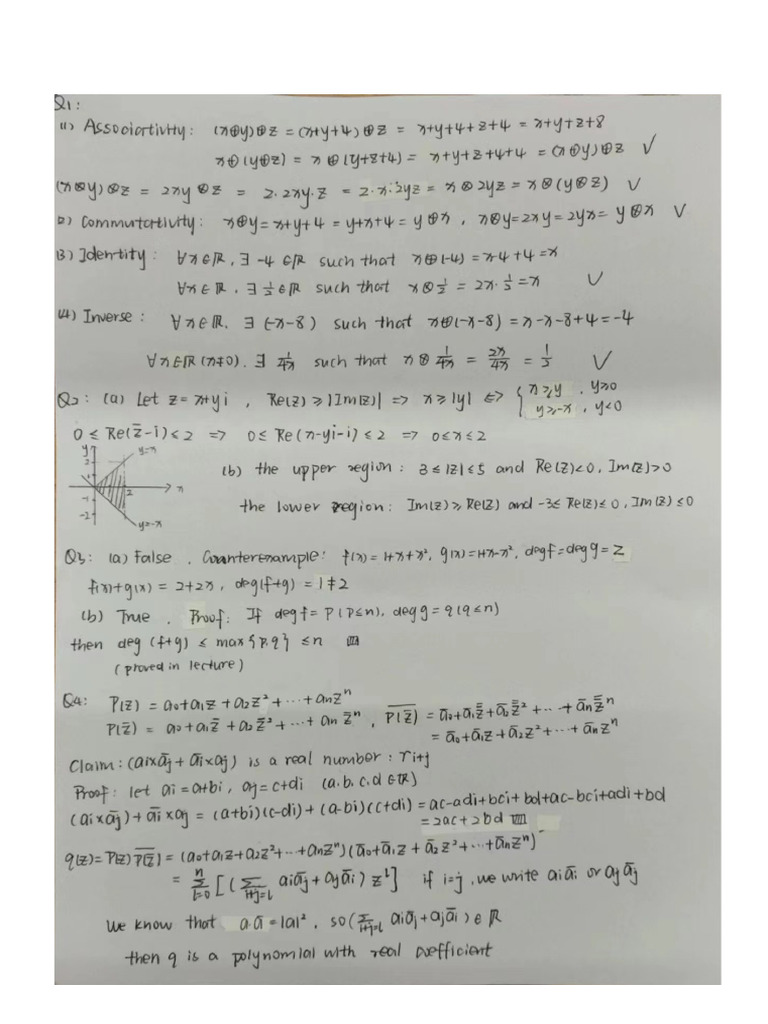 Q1:
(1) Associativity: (x⊕y)⊕z = (x+y+4)⊕z = x+y+4+z+4 = x+y+z+8
x⊕(y⊕z) = x⊕(y+z+4) = x+y+z+4+4 = (x⊕y)⊕z √
(x⊗y)⊗z = 2xy⊗z = 2·2xy·z = 2·x·2yz = x⊗2yz = x⊗(y⊗z) √
(2) Commutativity: x⊕y = x+y+4 = y+x+4 = y⊕x, x⊗y=2xy=2yx= y⊗x √
(3) Identity: ∀x∈ℝ, ∃ -4 ∈ℝ such that x⊕(-4) = x-4+4 =x
∀x∈ℝ, ∃ 1/2 ∈ℝ such that x⊗1/2 = 2x·1/2 = x √
(4) Inverse: ∀x∈ℝ. ∃ (-x-8) such that x⊕(-x-8) = x-x-8+4 = -4
∀x∈ℝ(x≠0). ∃ 1/4x such that x⊗1/4x = 2x/4x = 1/2 √
Q2: (a) Let z = x+yi, Re(z) ≥ |Im(z)| => x ≥ |y| <=> { x≥y, y≥0
y≥-x, y<0
0 ≤ Re(z̄-i) ≤ 2 => 0 ≤ Re(x-yi-i) ≤ 2 => 0≤x≤2
y
y=x
2
1
2
x
-1
-2
y=-x
(b) the upper region: 3 ≤ |z| ≤ 5 and Re(z)<0, Im(z)>0
the lower region: Im(z) ≥ Re(z) and -3≤ Re(z) ≤ 0, Im(z) ≤0
Q3: (a) False, Counterexample: f(x) = 1+x+x², g(x)=1+x-x², deg f = deg g = 2
f(x)+g(x) = 2+2x, deg(f+g) = 1 ≠ 2
(b) True. Proof: If deg f = p (p≤n), deg g = q (q≤n)
then deg (f+g) ≤ max{p,q} ≤ n
(proved in lecture)
Q4: P(z) = a₀+a₁z + a₂z² + ··· + aₙzⁿ
P(z̄) = a₀+a₁z̄ + a₂z̄² + ··· + aₙ z̄ⁿ, \overline{P(z̄)} = ā₀+ā₁z̿+ā₂z̿² + ··· + āₙz̿ⁿ
= ā₀+ā₁z+ā₂z² + ··· + āₙzⁿ
Claim: (aᵢ×āⱼ + āᵢ×aⱼ) is a real number: rᵢ₊ⱼ
Proof: let aᵢ = a+bi, aⱼ = c+di (a.b.c.d ∈ ℝ)
(aᵢ×āⱼ) + āᵢ×aⱼ = (a+bi)(c-di) + (a-bi)(c+di) = ac-adi+bci+bd+ac-bci+adi+bd
= 2ac + 2bd
q(z) = P(z) \overline{P(z̄)} = (a₀+a₁z+a₂z²+···+aₙzⁿ)(ā₀+ā₁z + ā₂z²+···+āₙzⁿ)
= Σ_{l=0}^{n} [( Σ_{i+j=l} aᵢāⱼ + aⱼāᵢ ) z^l] if i=j, we write aᵢāᵢ or aⱼāⱼ
We know that a·ā = |a|², so ( Σ_{i+j=l} aᵢāⱼ + aⱼāᵢ ) ∈ ℝ
then q is a polynomial with real coefficient